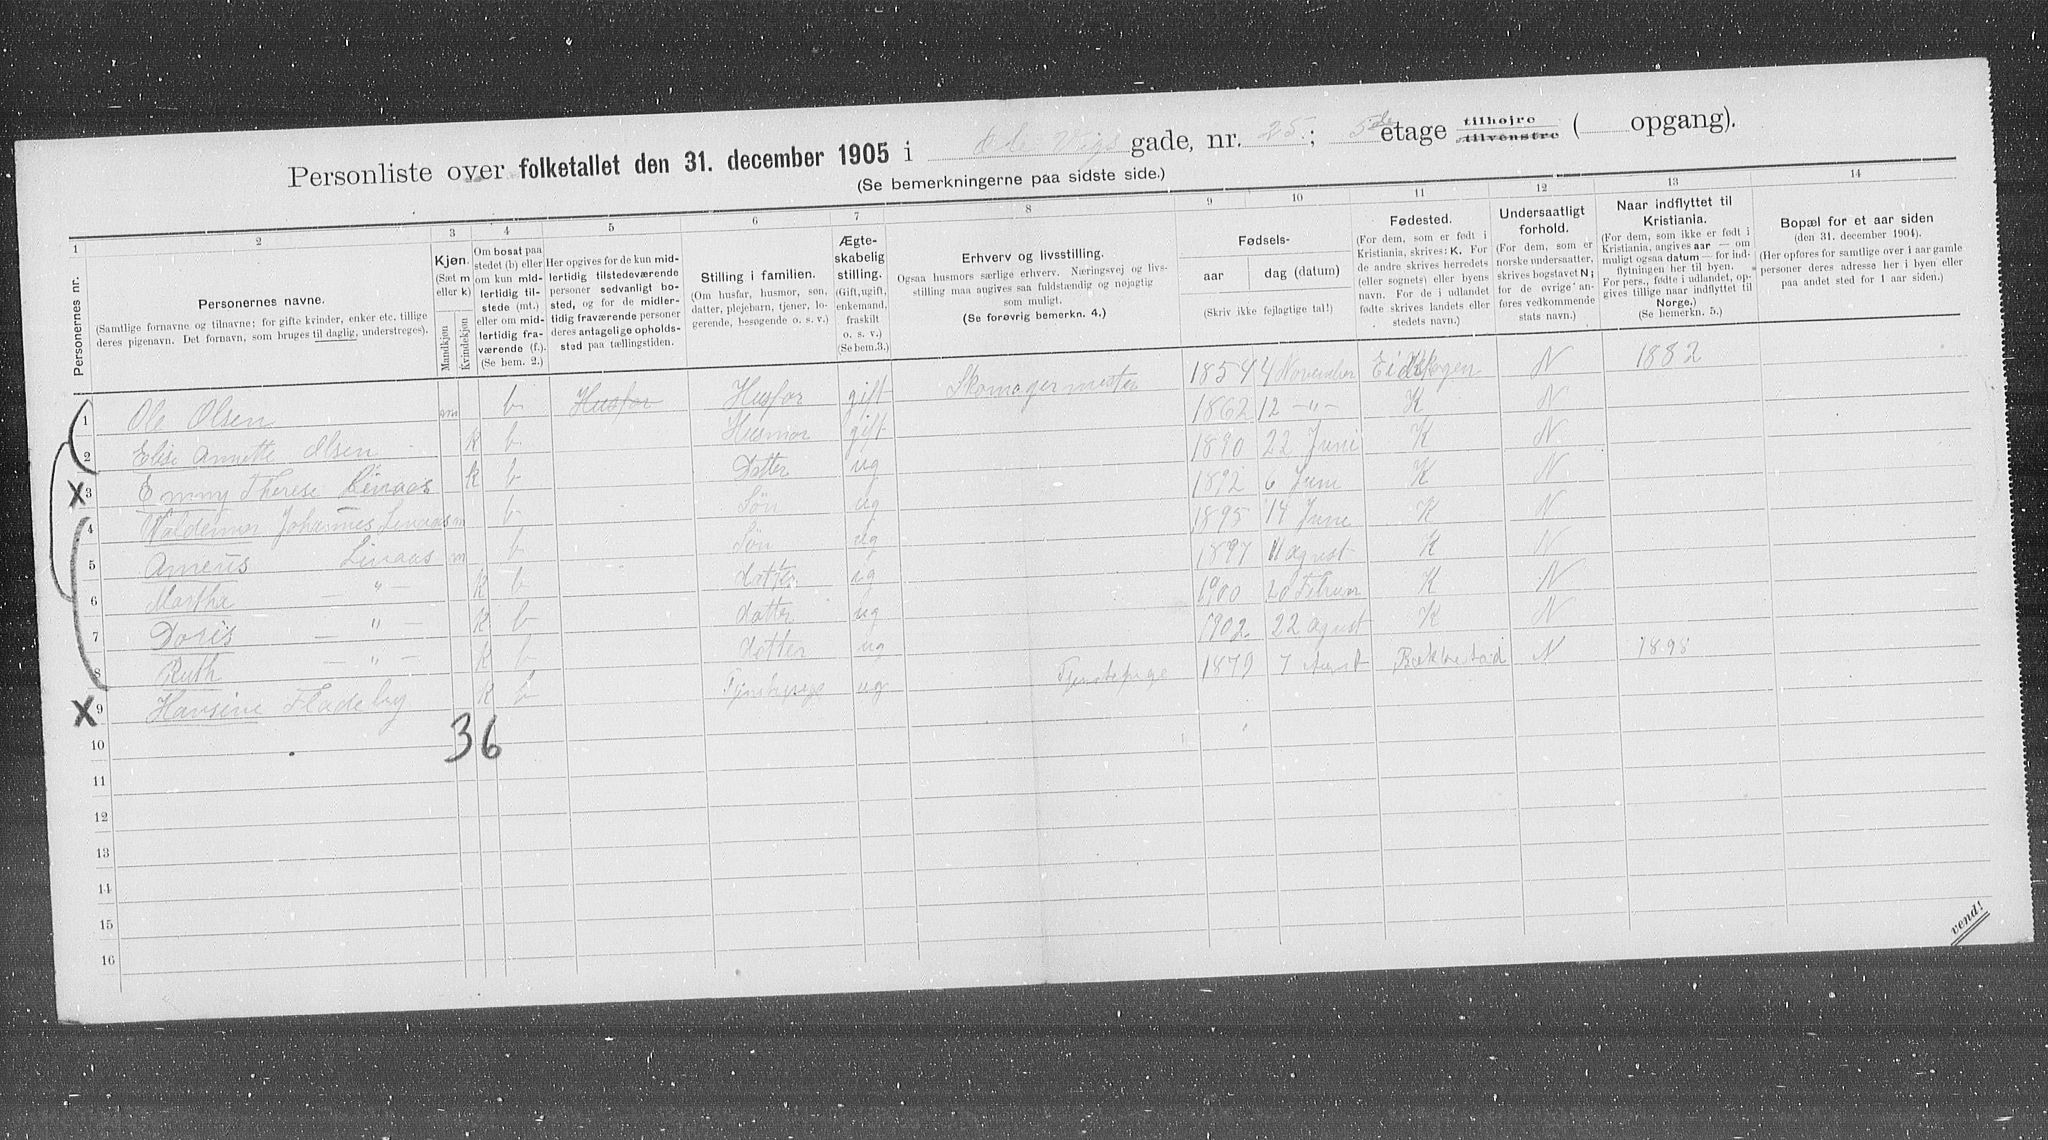 Personliste over folketallet den 31. december 1905 i Ole Vigs gade, nr. 25.; 5de etage tilhøjre tilvenstre ( opgang).
(Se bemerkningerne paa sidste side.)
1 2 3 4 5 6 7 8 9 10 11 12 13 14
Personernes nr.
Personernes navne.
(Samtlige fornavne og tilnavne; for gifte kvinder, enker etc, tillige
deres pigenavn. Det fornavn, som bruges til daglig, understreges).
Kjøn.
(Sæt m
eller k)
Mandkjøn
Kvindekjøn
Om bosat paa
stedet (b) eller
om kun mid-
lertidig til-
stede (mt.)
eller om mid-
lertidig fra-
værende (f.).
(Se bem. 2.)
Her opgives for de kun mid-
lertidig tilstedeværende
personer sedvanligt bo-
sted, og for de midler-
tidig fraværende personer
deres antagelige opholds-
sted paa tællingstiden.
Stilling i familien.
(Om husfar, husmor, søn,
datter, plejebarn, tjener, lo-
gerende, besøgende o. s. v.)
Ægte-
skabelig
stilling.
(Gift, ugift,
enkemand,
fraskilt
o. s. v.)
(Se bem.3.)
Erhverv og livsstilling.
Ogsaa husmors særlige erhverv. Næringsvej og livs-
stilling maa angives saa fuldstændig og nøjagtig
som muligt.
(Se forøvrig bemerkn. 4.)
Fødsels-
aar dag (datum)
(Skriv ikke fejlagtige tal!)
Fødested.
(For dem, som er født i
Kristiania, skrives: K. For
de andre skrives herredets
(eller sognets) eller byens
navn. For de i udlandet
fødte skrives landets eller
stedets navn.)
Undersaatligt
forhold.
(For dem, som er
norske undersaatter,
skrives bogstavet N;
for de øvrige an-
føres vedkommende
stats navn.)
Naar indflyttet til
Kristiania.
(For dem, som ikke er født i
Kristiania, angives aar — om
muligt ogsaa datum — for ind-
flytningen her til byen.
For pers., fødte i udlandet, op-
gives tillige naar indflyttet til
Norge.)
(Se bemerkn. 5.)
Bopæl for et aar siden
(den 31. december 1904).
(Her opføres for samtlige over 1 aar gamle
personer deres adresse her i byen eller
paa andet sted for 1 aar siden.)
1 Ole Olsen m b Husfar Husfar gift Skomagermester 1854 4 November Eidskogen N 1882
2 Elise Annette Olsen k b Husmor gift 1862 12 —"— K N
X 3 Emmy Therese Linaas k b Datter ug 1890 22 Juni K N
4 Valdemar Johannes Linaas m b Søn ug 1892 6 Juni K N
5 Linaas m b Søn ug 1895 14 Juni K N
6 Martha — " — k b datter ug 1897 11 August K N
7 Doris — " — k b datter ug 1900 20 Februar K N
8 Ruth — " — k b datter ug 1902 22 Agust K N
X 9 Hansine Fladeby k b Tjenstepige ug Tjenstepige 1879 7 August N 1898
36
10
11
12
13
14
15
16
vend!